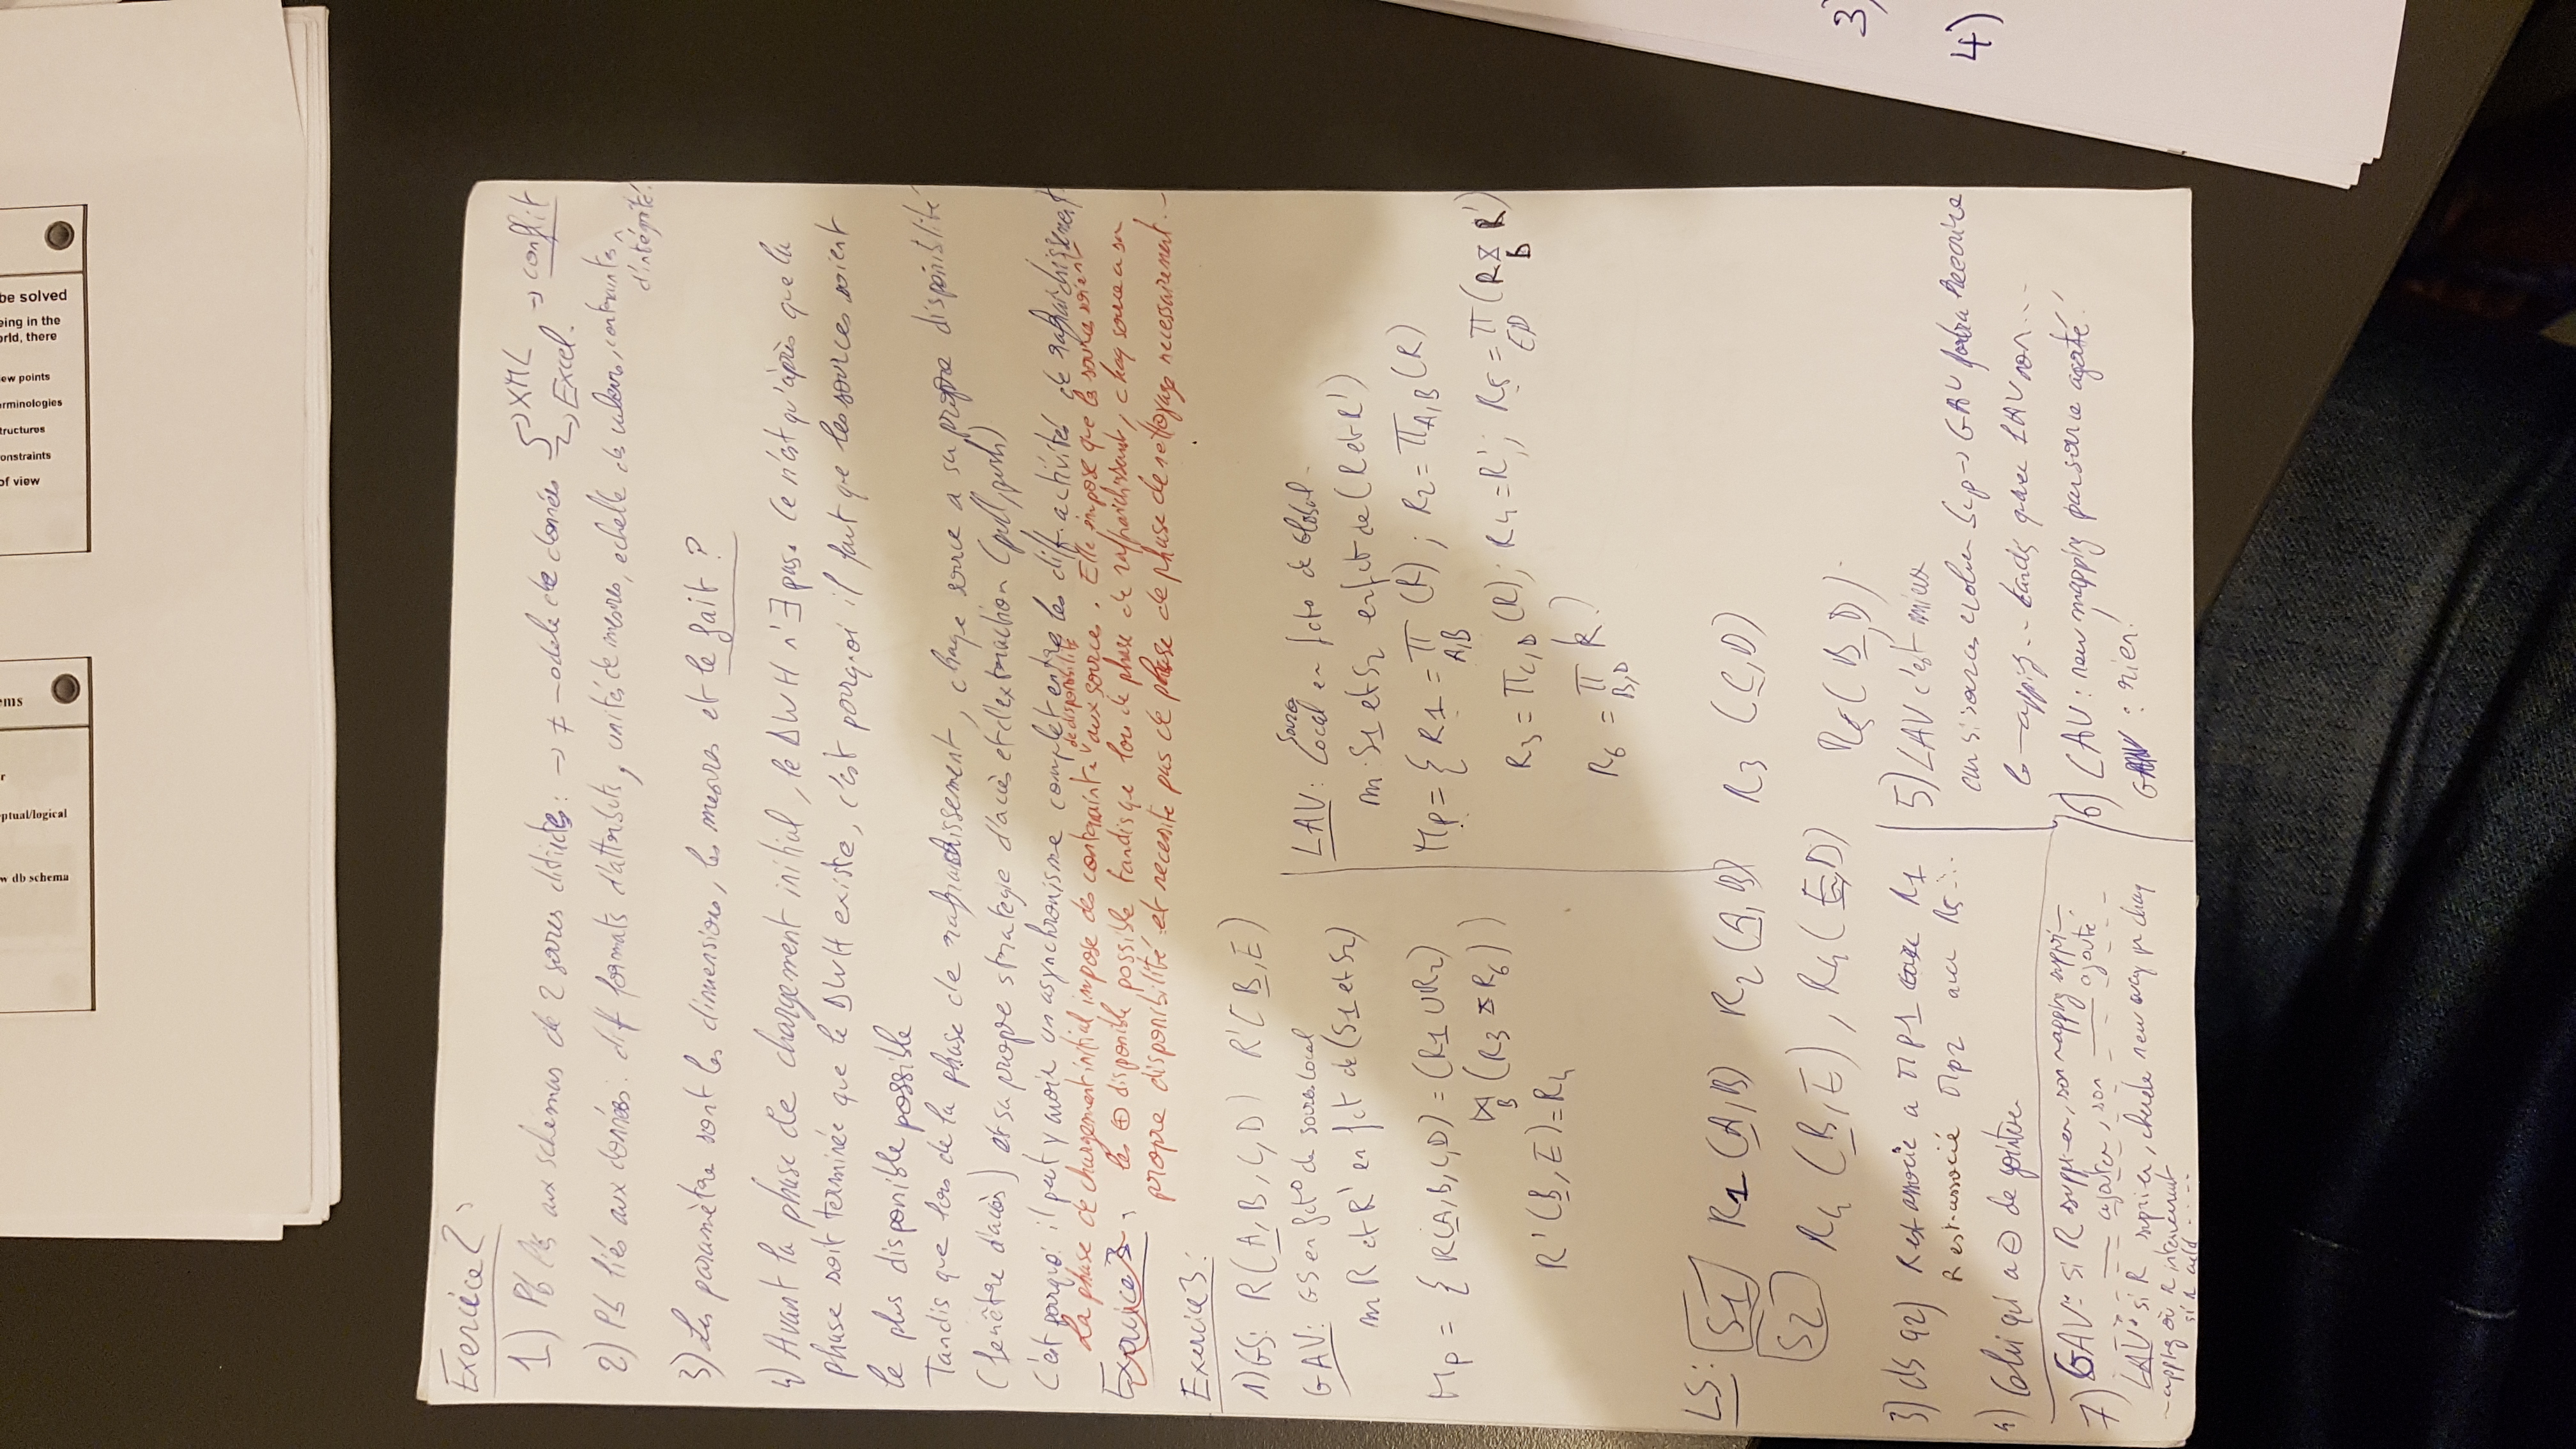 ms
w db schema
ptual/logical
r
be solved
eing in the
orld, there
ew points
rminologies
tructures
onstraints
of view
Exercice 2 :
1) Pb liés aux schemas de 2 sources distinctes : → ≠ modele de données → XML → conflit
→ Excel.
2) Pb liés aux données : diff formats d'attributs, unités de mesures, echelle de valeurs, contraintes
d'intégrité.
3) Les paramètre sont les dimensions, les mesures et le fait ?
4) Avant la phase de chargement initial, le DWH n'∃ pas. Ce n'est qu'après que la
phase soit terminée que le DWH existe, c'est pourquoi il faut que les sources soient
le plus disponible possible
Tandis que lors de la phase de rafraichissement, chaque source a sa propre disponibilité
(fenêtre d'accès) et sa propre strategie d'accès et d'extraction (pull, push)
C'est pourquoi il peut y avoir un asynchronisme complet entre les diff. activités de rafraichissement
La phase de chargement initial impose des contrainte de disponibilité aux sources. Elle impose que les source soient
Exercice 3 : les ⊕ disponible possible tandis que lors de phase de raffraichissement, chaq source a sa
propre disponibilité et necessite pas de phase de phase de nettoyage necessairement.
Exercice 3 :
1) GS: R(A,B,C,D) R'(B,E)
GAV: GS en fct° de source local
m R et R' en fct de (S1 et S2)
Mp = { R(A,B,C,D) = (R1 ∪ R2)
⋈ B (R3 ⋈ R6) )
R'(B,E) = R4
LAV: Source Local en fct° de Global
m S1 et S2 en fct de (R et R')
Mp = { R1 = π A,B (R) ; R2 = π A,B (R)
R3 = π C,D (R) ; R4 = R' ; R5 = π E,D (R ⋈ B R')
R6 = π B,D R )
LS:
S1 R1 (A,B) R2 (A,B) R3 (C,D)
S2
R4 (B,E), R4 (E,D) R5 (B,D)
3) ds q2) R est associé a Mp1 avec R1
R est associé Mp2 avec R5 ...
4) Celui qui a ⊖ de jointure
5) LAV c'est mieux
car si sources evoluen → GAV faudra Reecrire
le mapping .. tandis qavec LAV non ...
7) GAV: si R supprimer, son mapping supprim
—— ajouter, son —— ajouté
LAV: si R suprimer, cherche new way pr chaq
mapping où R intervient
si R add .....
6) LAV: new mapping par source ajouté !
GAV : rien !
3)
4)